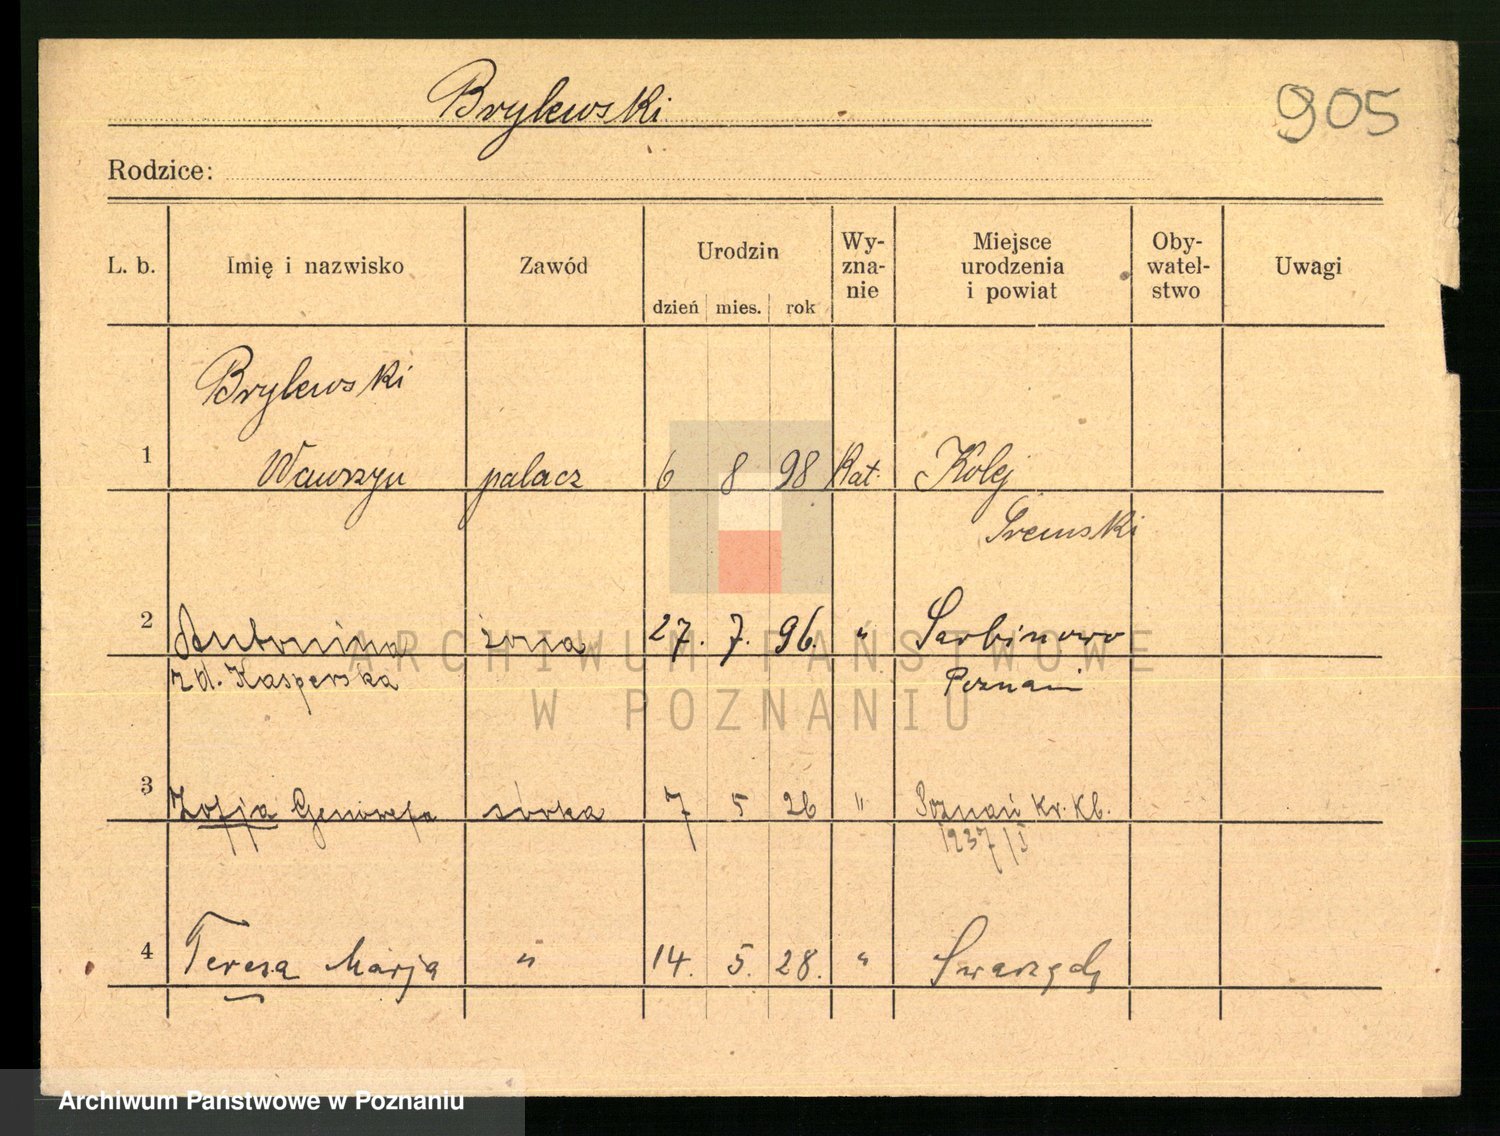 Brylewski
905
Rodzice:
L. b. Imię i nazwisko Zawód Urodzin Wy- Miejsce Oby- Uwagi
zna- urodzenia watel-
nie i powiat stwo
dzień mies. rok
Brylewski
1 Wawrzyn palacz 6 8 98 Kat. Kolej
Śremski
2 Antonina żona 27. 7. 96. " Sarbinowo
zd. Kasperska Poznań
3 Zofja Genowefa córka 7 5 26 " Poznań Kr. Kb.
1237/I
4 Teresa Marja " 14. 5. 28. " Swarzędz
ARCHIWUM PAŃSTWOWE
W POZNANIU
Archiwum Państwowe w Poznaniu